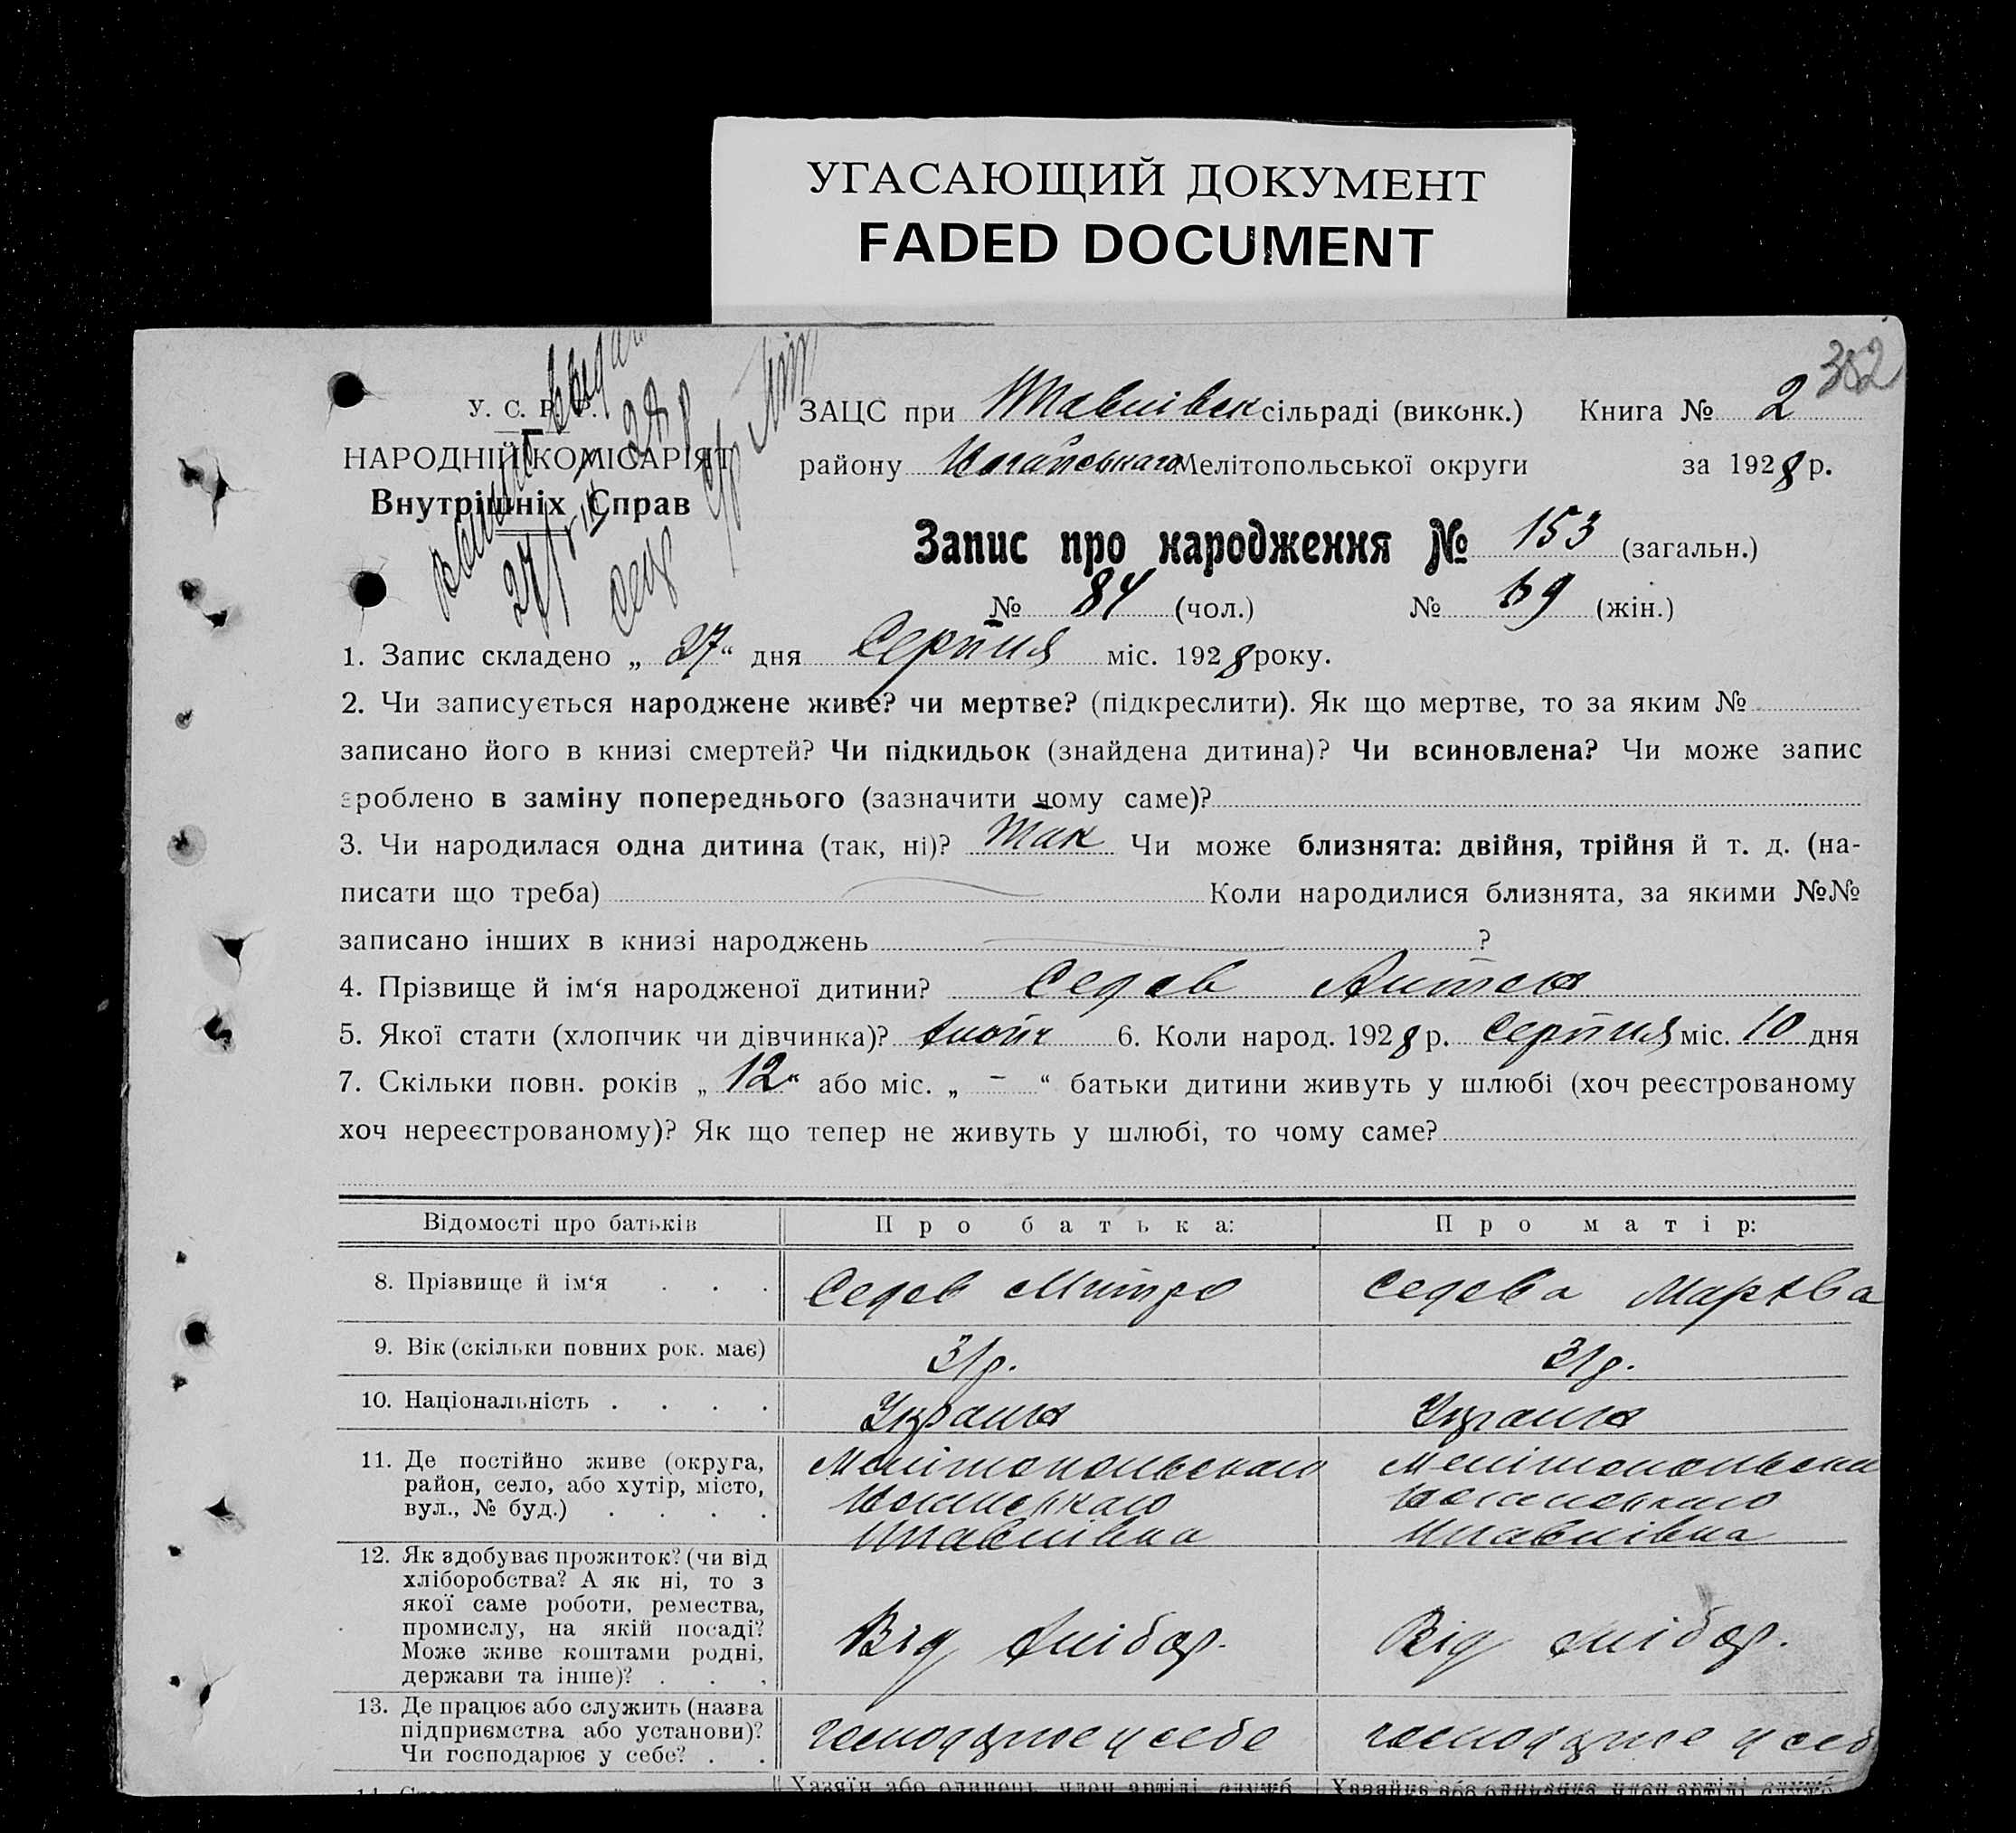 УГАСАЮЩИЙ ДОКУМЕНТ
FADED DOCUMENT
382
У. С. Р. Р.
НАРОДНІЙ КОМІСАРІЯТ
Внутрішніх Справ
ЗАЦС при сільраді (виконк.) Книга № 2
району Мелітопольської округи за 1928 р.
Запис про народження № 153 (загальн.)
№ 84 (чол.) № 69 (жін.)
1. Запис складено „ 27 “ дня Серпня міс. 1928 року.
2. Чи записується народжене живе? чи мертве? (підкреслити). Як що мертве, то за яким №
записано його в книзі смертей? Чи підкидьок (знайдена дитина)? Чи всиновлена? Чи може запис
зроблено в заміну попереднього (зазначити чому саме)?
3. Чи народилася одна дитина (так, ні)? Так Чи може близнята: двійня, трійня й т. д. (на-
писати що треба) Коли народилися близнята, за якими №№
записано інших в книзі народжень ?
4. Прізвище й ім‘я народженої дитини? Седов
5. Якої стати (хлопчик чи дівчинка)? хлопч 6. Коли народ. 1928 р. Серпня міс. 10 дня
7. Скільки повн. років „ 12 “ або міс. „ - “ батьки дитини живуть у шлюбі (хоч реєстрованому
хоч нереєстрованому)? Як що тепер не живуть у шлюбі, то чому саме?
Відомості про батьків Про батька: Про матір:
8. Прізвище й ім‘я . . . Седов Митро Седова
9. Вік (скільки повних рок. має) 31 р. 31 р.
10. Національність . . . . Україна Україна
11. Де постійно живе (округа,
район, село, або хутір, місто,
вул., № буд.) . . . .
12. Як здобуває прожиток? (чи від
хліборобства? А як ні, то з
якої саме роботи, ремества,
промислу, на якій посаді?
Може живе коштами родні,
держави та інше)? . . .
Від хлібор. Від хлібор.
13. Де працює або служить (назва
підприємства або установи)?
Чи господарює у себе? . .
господарює у себе господарює у себе
Хазяїн або одинець, член артілі, служб. Хазяйка або одиначка, член артілі, служб.